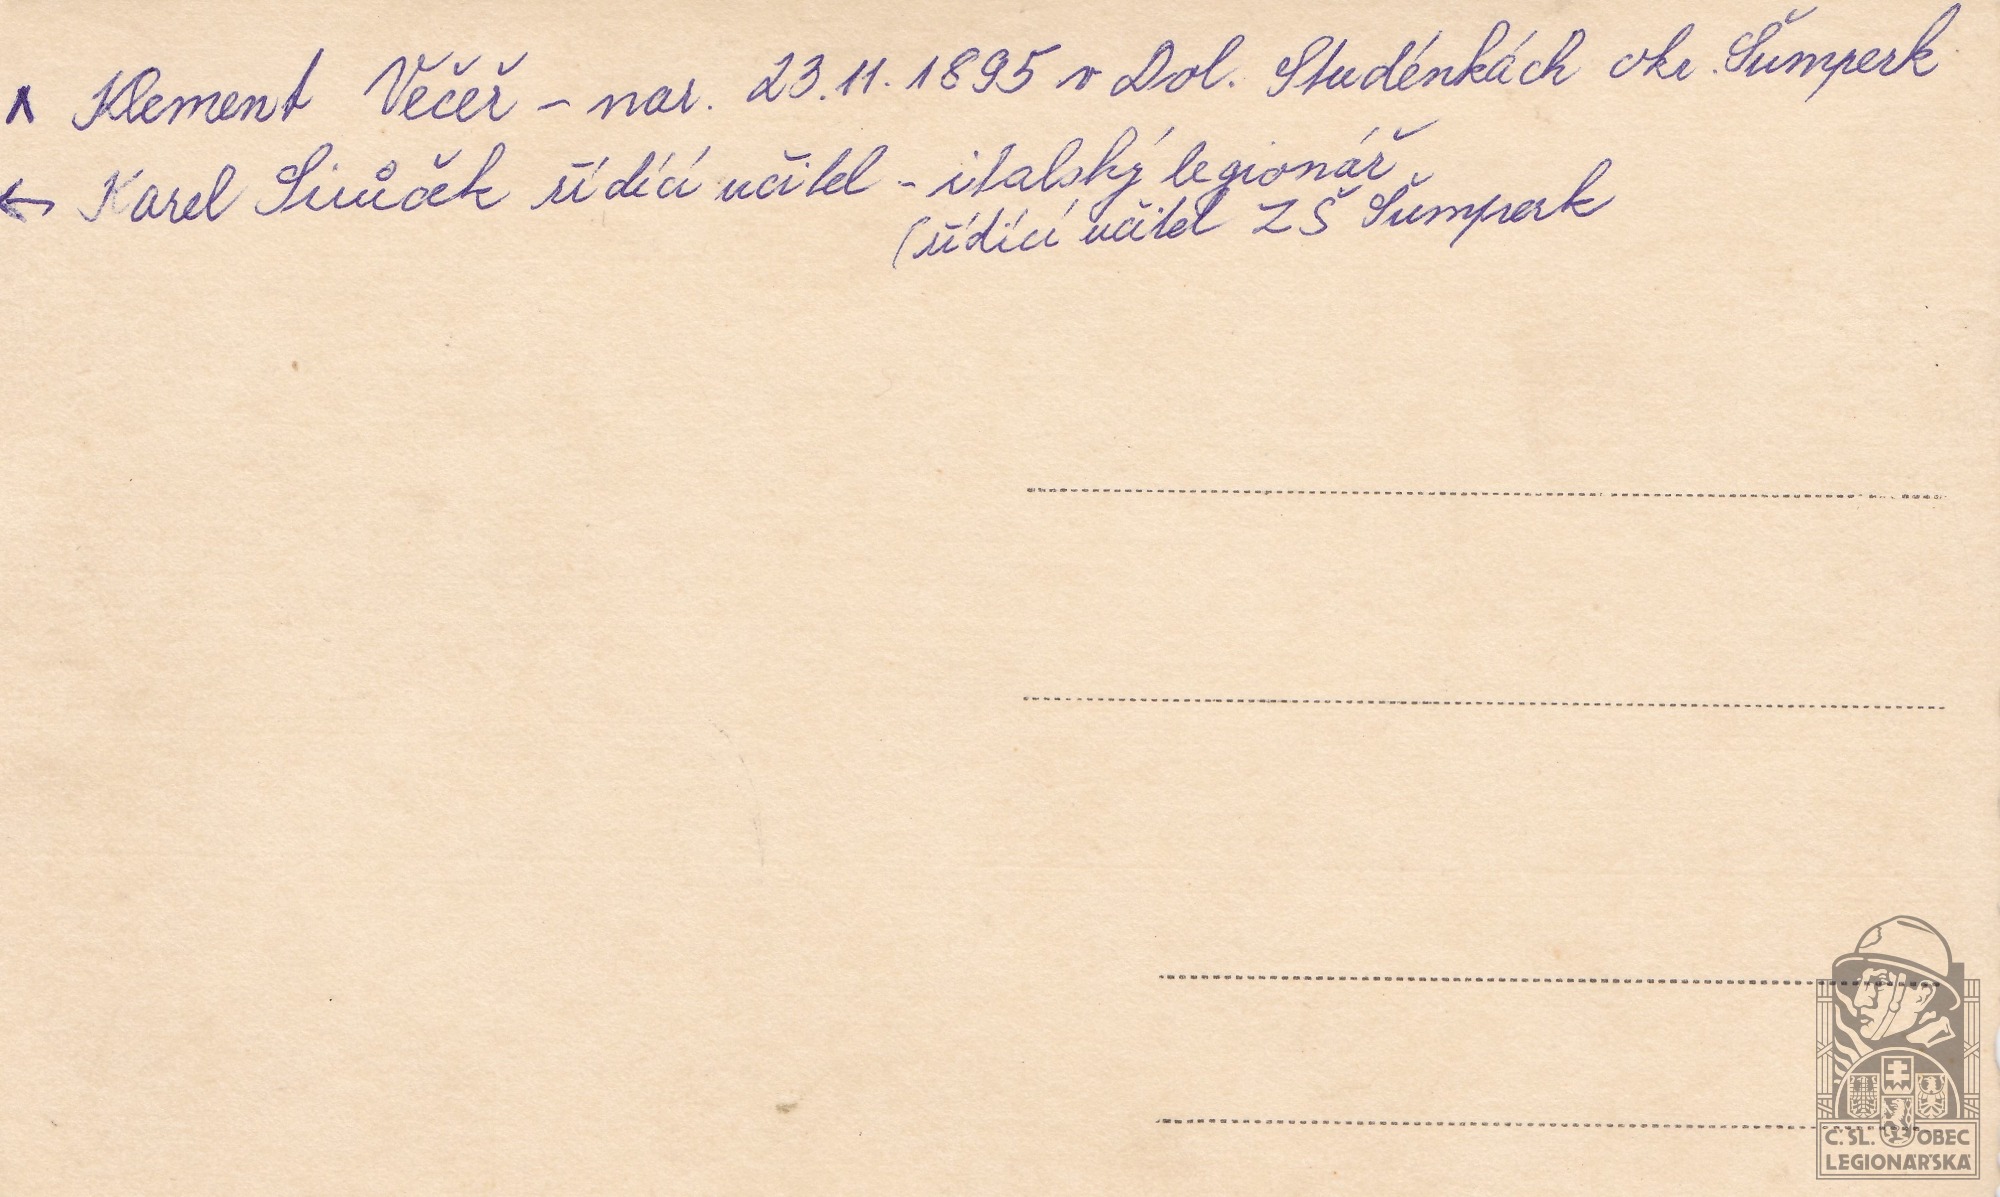 Klement Věčeř - nar. 23.11.1895 v Dol. Studénkách okr. Šumperk
Karel řídící učitel - italský legionář
(řídící učitel ZŠ Šumperk
Č. SL. OBEC
LEGIONÁŘSKÁ